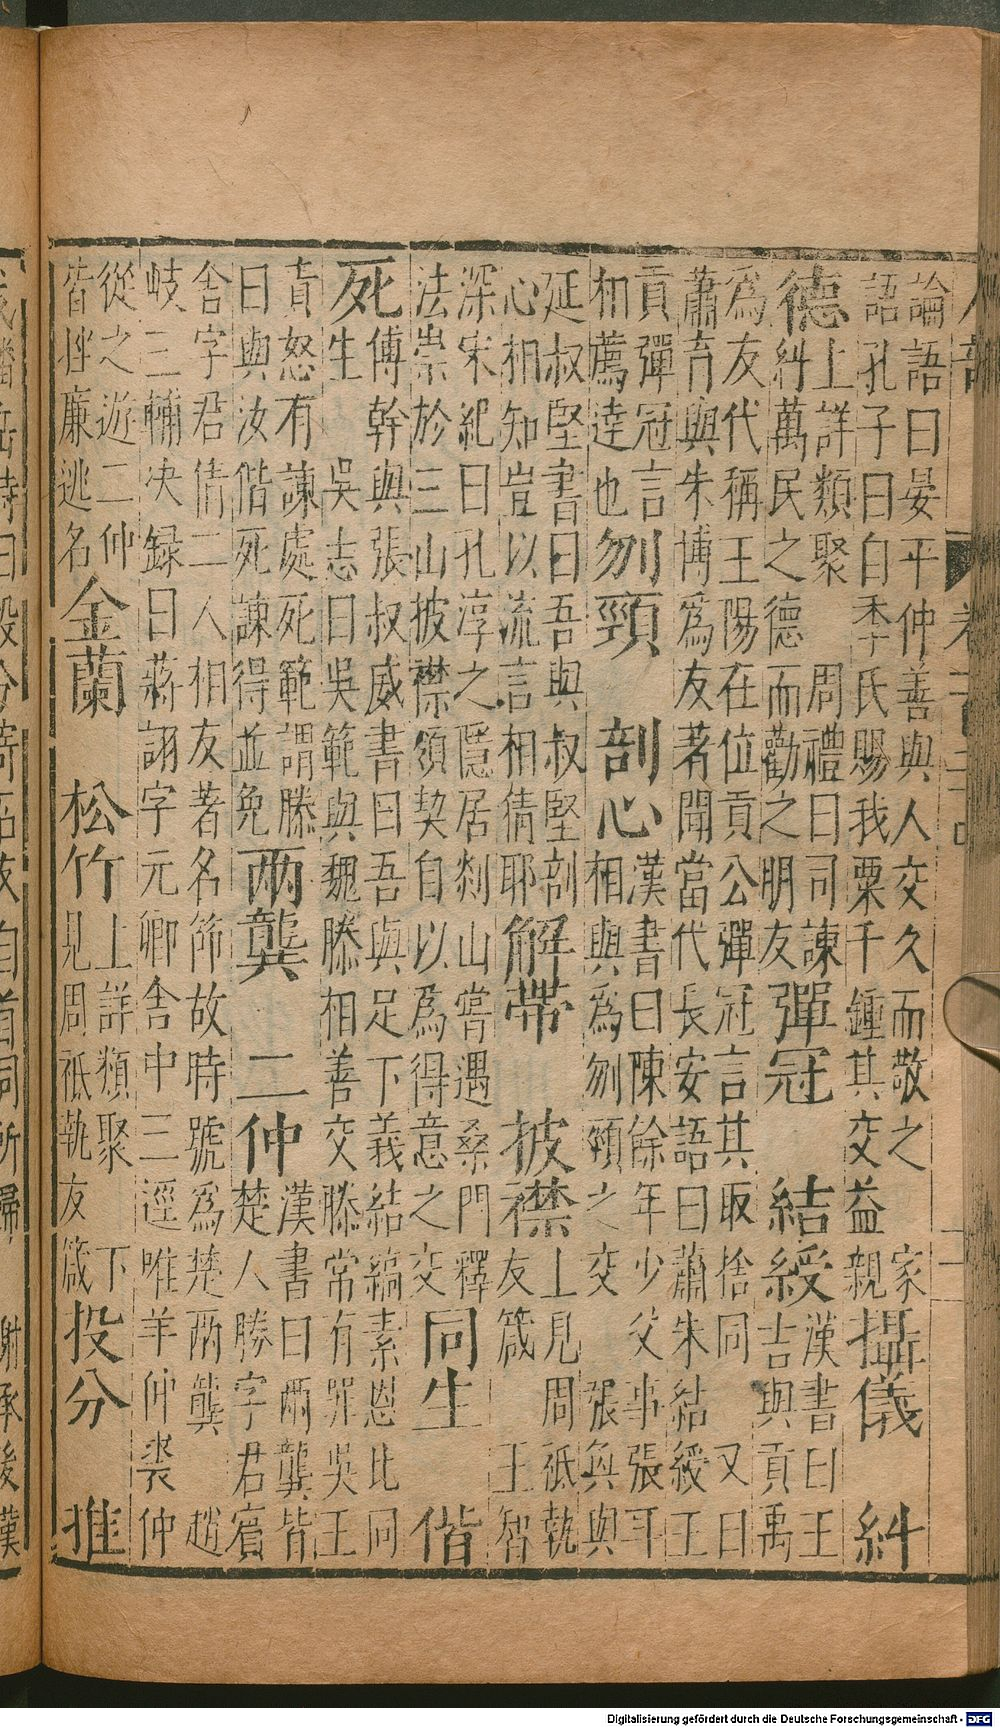 論語曰晏平仲善與人交久而敬之 家
語孔子曰自季氏賜我粟千鍾其交益親 攝儀 糾
德 上詳類聚 周禮曰司諫
糾萬民之德而勸之朋友 彈冠 結綬 漢書曰王
吉與貢禹
為友代稱王陽在位貢公彈冠言其取捨同 又曰
蕭育與朱博為友著聞當代長安語曰蕭朱結綬王
貢彈冠言
相薦達也 刎頸 剖心 漢書曰陳餘年少父事張耳
相與為刎頸之交 張奐與
延叔堅書曰吾與叔堅剖
心相知豈以流言相猜耶 解帶 披襟 上見周祗執
友箴 王智
深宋紀曰孔淳之隱居剡山嘗遇桑門釋
法崇於三山披襟領契自以為得意之交 同生 偕
死 傅幹與張叔威書曰吾與足下義結縞素恩比同
生 吳志曰吳範與魏滕相善交滕常有罪吳王
責怒有諫處死範謂滕
曰與汝偕死諫得並免 兩龔 二仲 漢書曰兩龔皆
楚人勝字君賓
舍字君倩二人相友著名節故時號為楚兩龔 趙
岐三輔决録曰蔣詡字元卿舍中三逕唯羊仲裘仲
從之遊二仲
皆挫廉逃名 金蘭 松竹 上詳類聚 下
見周祗執友箴 投分 推
Digitalisierung gefördert durch die Deutsche Forschungsgemeinschaft - DFG